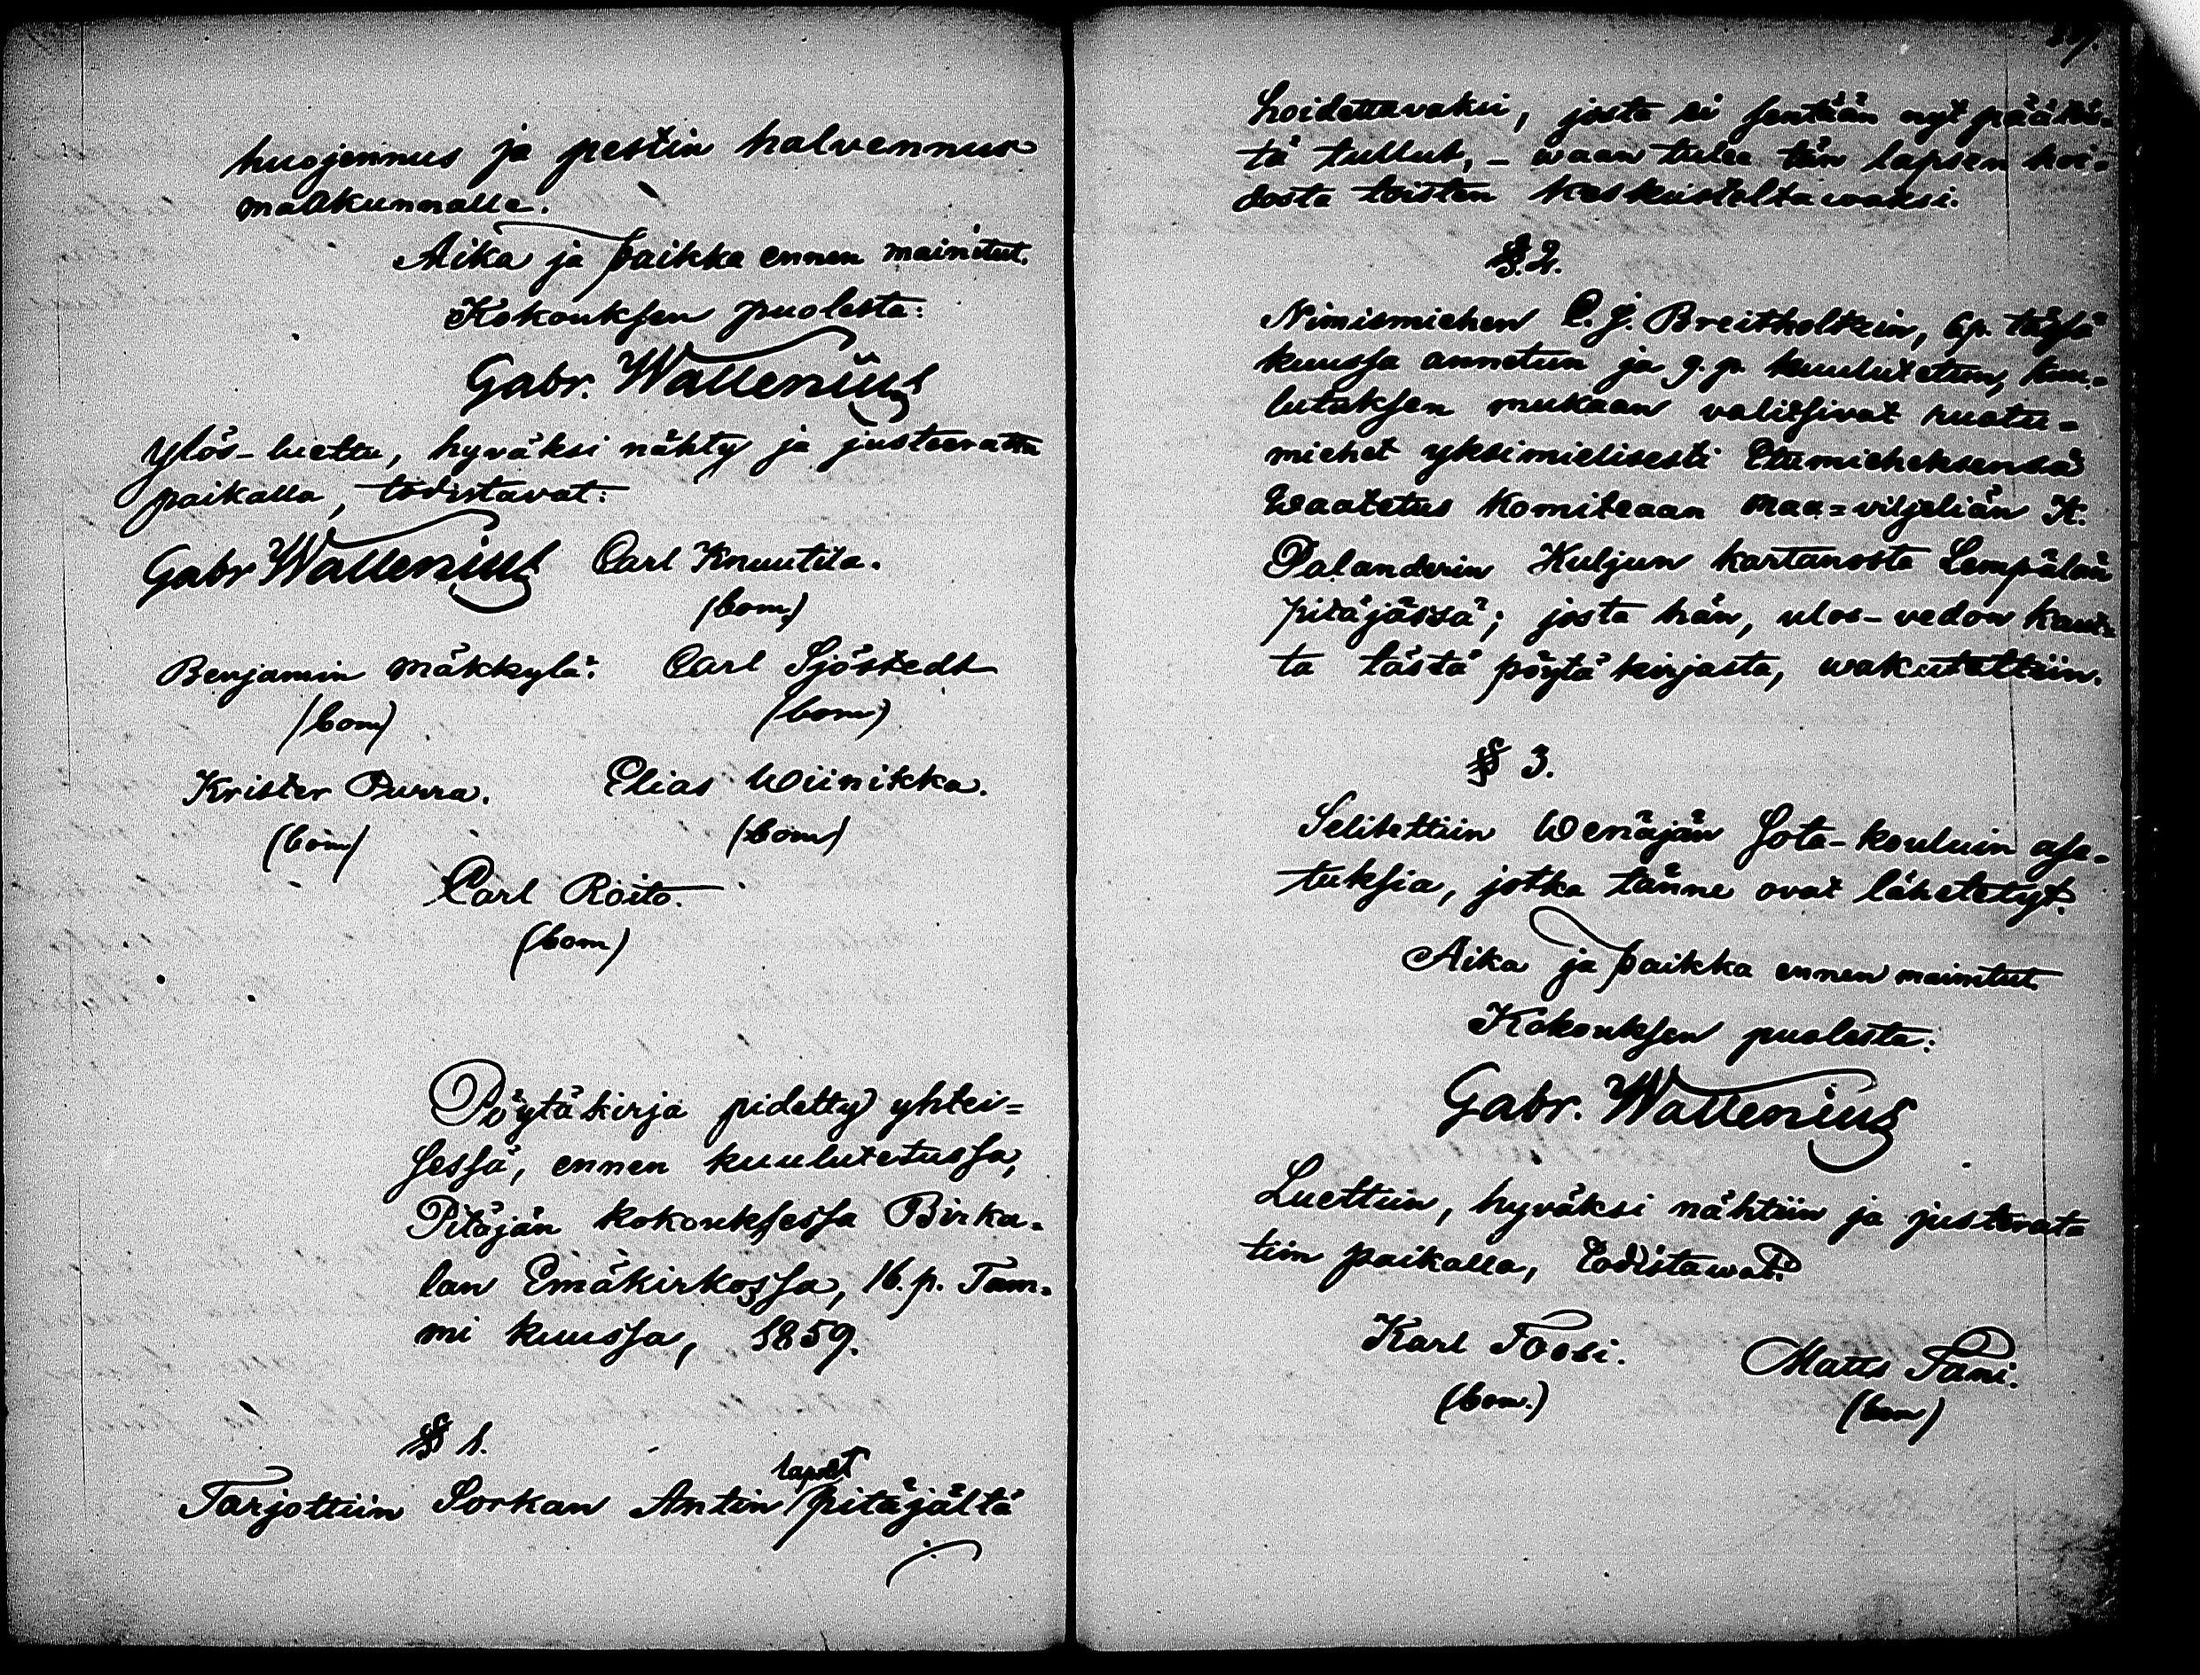 huojennus ja pestin halvennus
maakunnalle.
Aika ja paikka ennen mainitut.
Kokouksen puolesta:
Gabr. Wallenius
Ylös-luettu, hyväksi nähty ja justeerattu
paikalla, todistavat:
Gabr Wallenius Carl Knuutila.
(bom)
Benjamin Mäkkylä. Carl Sjöstedt
(bom) (bom)
Krister Purra. Elias Wiinikka.
(bom) (bom)
Carl Roito.
(bom)
Pöytäkirja pidetty yhtei=
sessä, ennen kuulutetussa,
Pitäjän kokouksessa Birka=
lan Emäkirkossa, 16. p. Tam=
mi kuussa, 1859.
§ 1.
Tarjottiin Sorkan Antin lapset pitäjältä
./.
hoidettavaksi, josta ei sentään nyt päätös=
tä tullut, - waan tulee tän lapsen hoi=
dosta toisten keskusteltawaksi.
§. 2.
Nimismiehen C. J. Breitholtzin, 6 p. tässä
kuussa annetun ja 9. p. kuulutetun, kuu=
lutuksen mukaan valitsivat ruotu=
miehet yksimielisesti Etumieheksensä
Waatetus Komiteaan maa=viljeliän K.
Palanderin Kuljun kartanosta Lempälän
pitäjässä; josta hän, ulos-vedon kaut=
ta tästä pöytäkirjasta, wakutettiin.
§ 3.
Selitettiin Wenäjän Sota-kouluin ase=
tuksia, jotka tänne ovat lähetetyt.
Aika ja paikka ennen mainitut.
Kokouksen puolesta:
Gabr. Wallenius
Luettiin, hyväksi nähtiin ja justerata
tiin paikalla, todistawat:
Karl Toosi. Matts Pani.
(bom.) (bom)